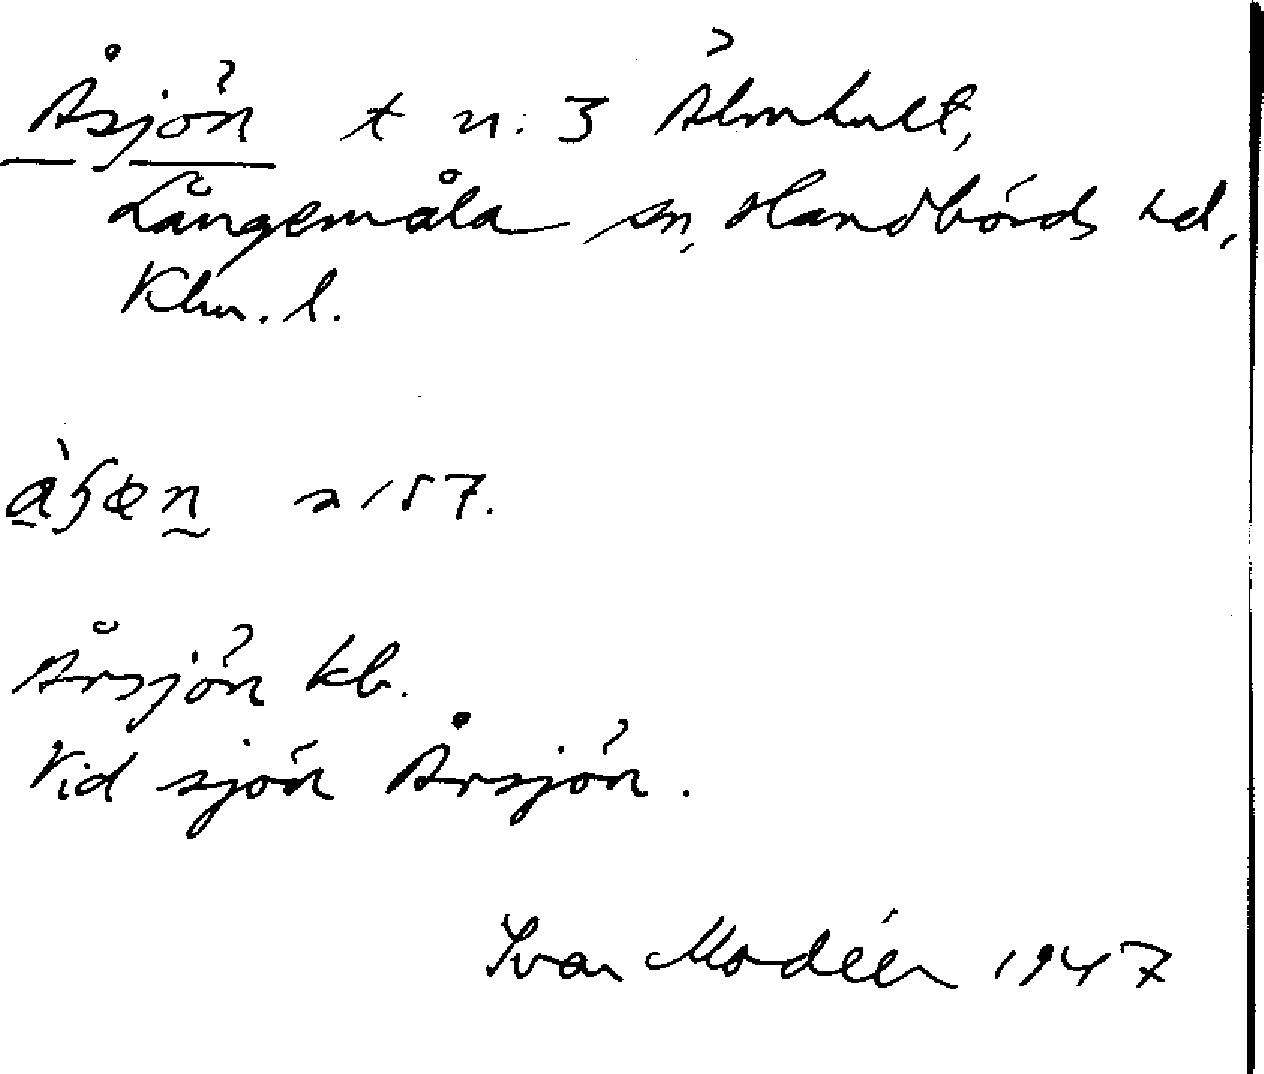 Åsjön t n:3 Älmhult,
Långemåla sn, Handbörds hd,
Klm. l.
Årsjön kb.
Vid sjön Årsjön.
Ivar Modéer 1947